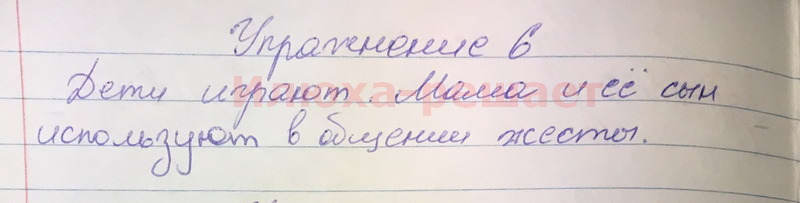 Упражнение 6
Дети играют. Мама и её сын
используют в общении жесты.
Илюха-решает